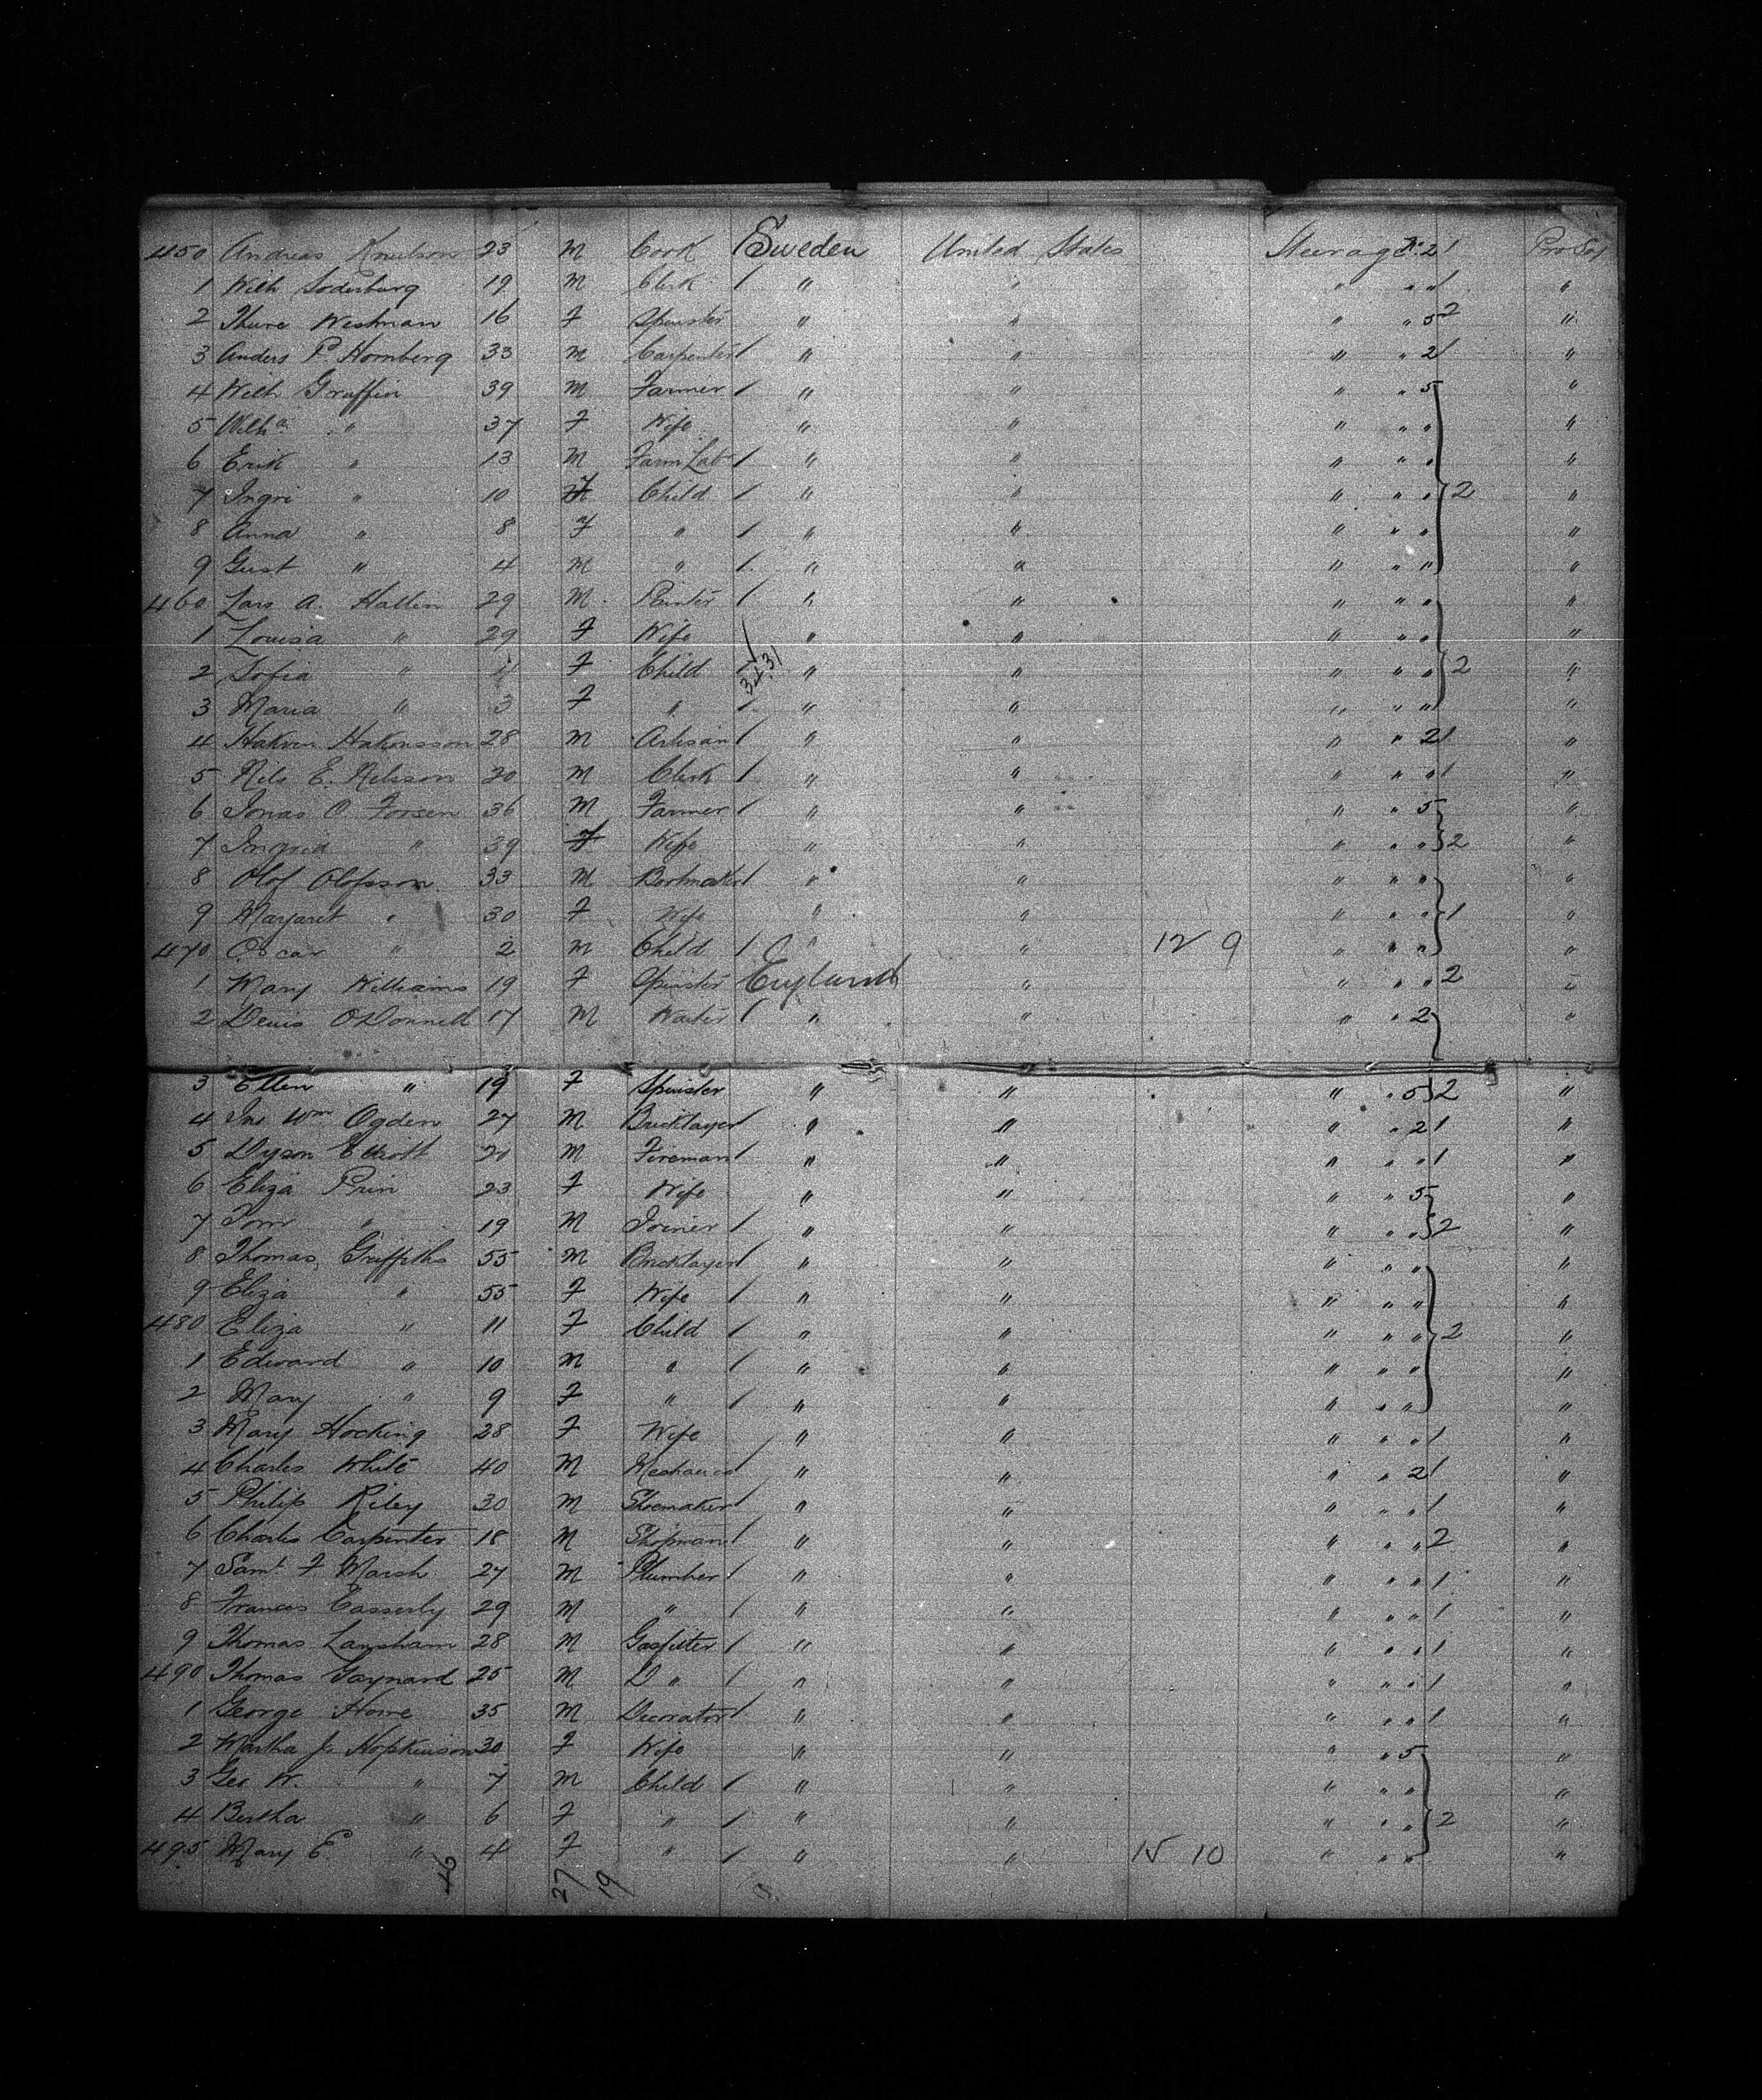 450 Andreas Knutson 23 M Cook / Sweden United States Steerage No. 2 1 Pro Set
1 Wilh Soderburg 19 M Clerk / " " " " " 1 "
2 Thure Westman 16 F Spinster " " " " 5 2 "
3 Anders P. Hornberg 33 M Carpenter / " " " " 2 1 "
4 Wilh Graffin 39 M Farmer / " " " " 5 "
5 Wilha " 37 F Wife " " " " " "
6 Erik " 13 M Farm Labr / " " " " " "
7 Ingri " 10 F Child / " " " " " 2 "
8 Anna " 8 F " / " " " " " "
9 Gust " 4 M " / " " " " " "
460 Lars A. Hallin 29 M Painter / " " " " " "
1 Louisa " 29 F Wife " " " " " "
2 Sofia " 4 F Child / " " " " " 2 "
3 Maria " 3 F " / " " " " " "
4 Hakon Hakonsson 28 M Artisan / " " " " 2 1 "
5 Nils E. Nilsson 20 M Clerk / " " " " " 1 "
6 Jonas O Forsen 36 M Farmer / " " " " 5 "
7 Ingrid " 39 F Wife " " " " " 2 "
8 Olof Olofsson 33 M Bootmaker / " " " " " "
9 Margaret " 30 F Wife " " " " " 1 "
470 Oscar " 2 M Child / " " 12 9 " " " "
1 Mary Williams 19 F Spinster England " " " " 2 "
2 Denis O'Donnell 17 M Waiter / " " " " 2 "
3 Ellen " 19 F Spinster " " " " 5 2 "
4 Jno Wm Ogden 27 M Bricklayer / " " " " 2 1 "
5 Dyson Elliott 20 M Fireman / " " " " " 1 "
6 Eliza Prin 23 F Wife " " " " 5 "
7 Tom " 19 M Joiner / " " " " " 2 "
8 Thomas Griffiths 55 M Bricklayer / " " " " " "
9 Eliza " 55 F Wife / " " " " " "
480 Eliza " 11 F Child / " " " " " 2 "
1 Edward " 10 M " / " " " " " "
2 Mary " 9 F " / " " " " " "
3 Mary Hocking 28 F Wife " " " " " 1 "
4 Charles White 40 M Mechanic / " " " " 2 1 "
5 Philip Riley 30 M Shoemaker / " " " " " 1 "
6 Charles Carpenter 18 M Shopman / " " " " " 2 "
7 Saml F Marsh 27 M Plumber / " " " " " 1 "
8 Frances Casserly 29 M " / " " " " " 1 "
9 Thomas Langham 28 M Gasfitter / " " " " " 1 "
490 Thomas Gaynard 25 M D " / " " " " " 1 "
1 George Howe 35 M Decorator / " " " " " 1 "
2 Martha J. Hopkinson 30 F Wife " " " " 5 "
3 Geo W. " 7 M Child / " " " " " "
4 Bertha " 6 F " / " " " " " 2 "
495 Mary E. " 4 F " / " " 15 10 " " " "
46 27 19